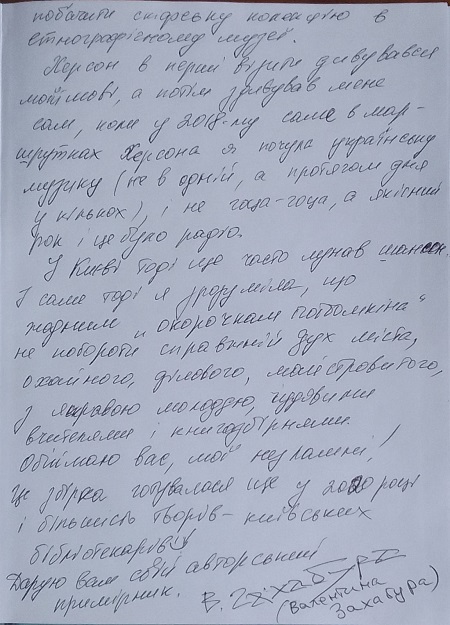 побачити скіфську колекцію в
етнографічному музеї.
Херсон в перші візити дивувався
моїй мові, а потім здивував мене
сам, коли у 2018-му саме в мар-
шрутках Херсона я почула українську
музику (не в одній, а протягом дня
у кількох), і не гоца-гоца, а якісний
рок і це було радіо.
У Києві тоді ще часто лунав шансон.
І саме тоді я зрозуміла, що
жодним „окорочкам потьомкіна"
не побороти справжній дух міста,
охайного, ділового, майстровитого,
з яскравою молоддю, чудовими
вчителями і книгозбірнями.
Обіймаю вас, мої незламні!
Ця збірка готувалася ще у 2020 році
і більшість творів - київських
бібліотекарів
Дарую вам свій авторський
примірник. В.
(Валентина
Захабура)